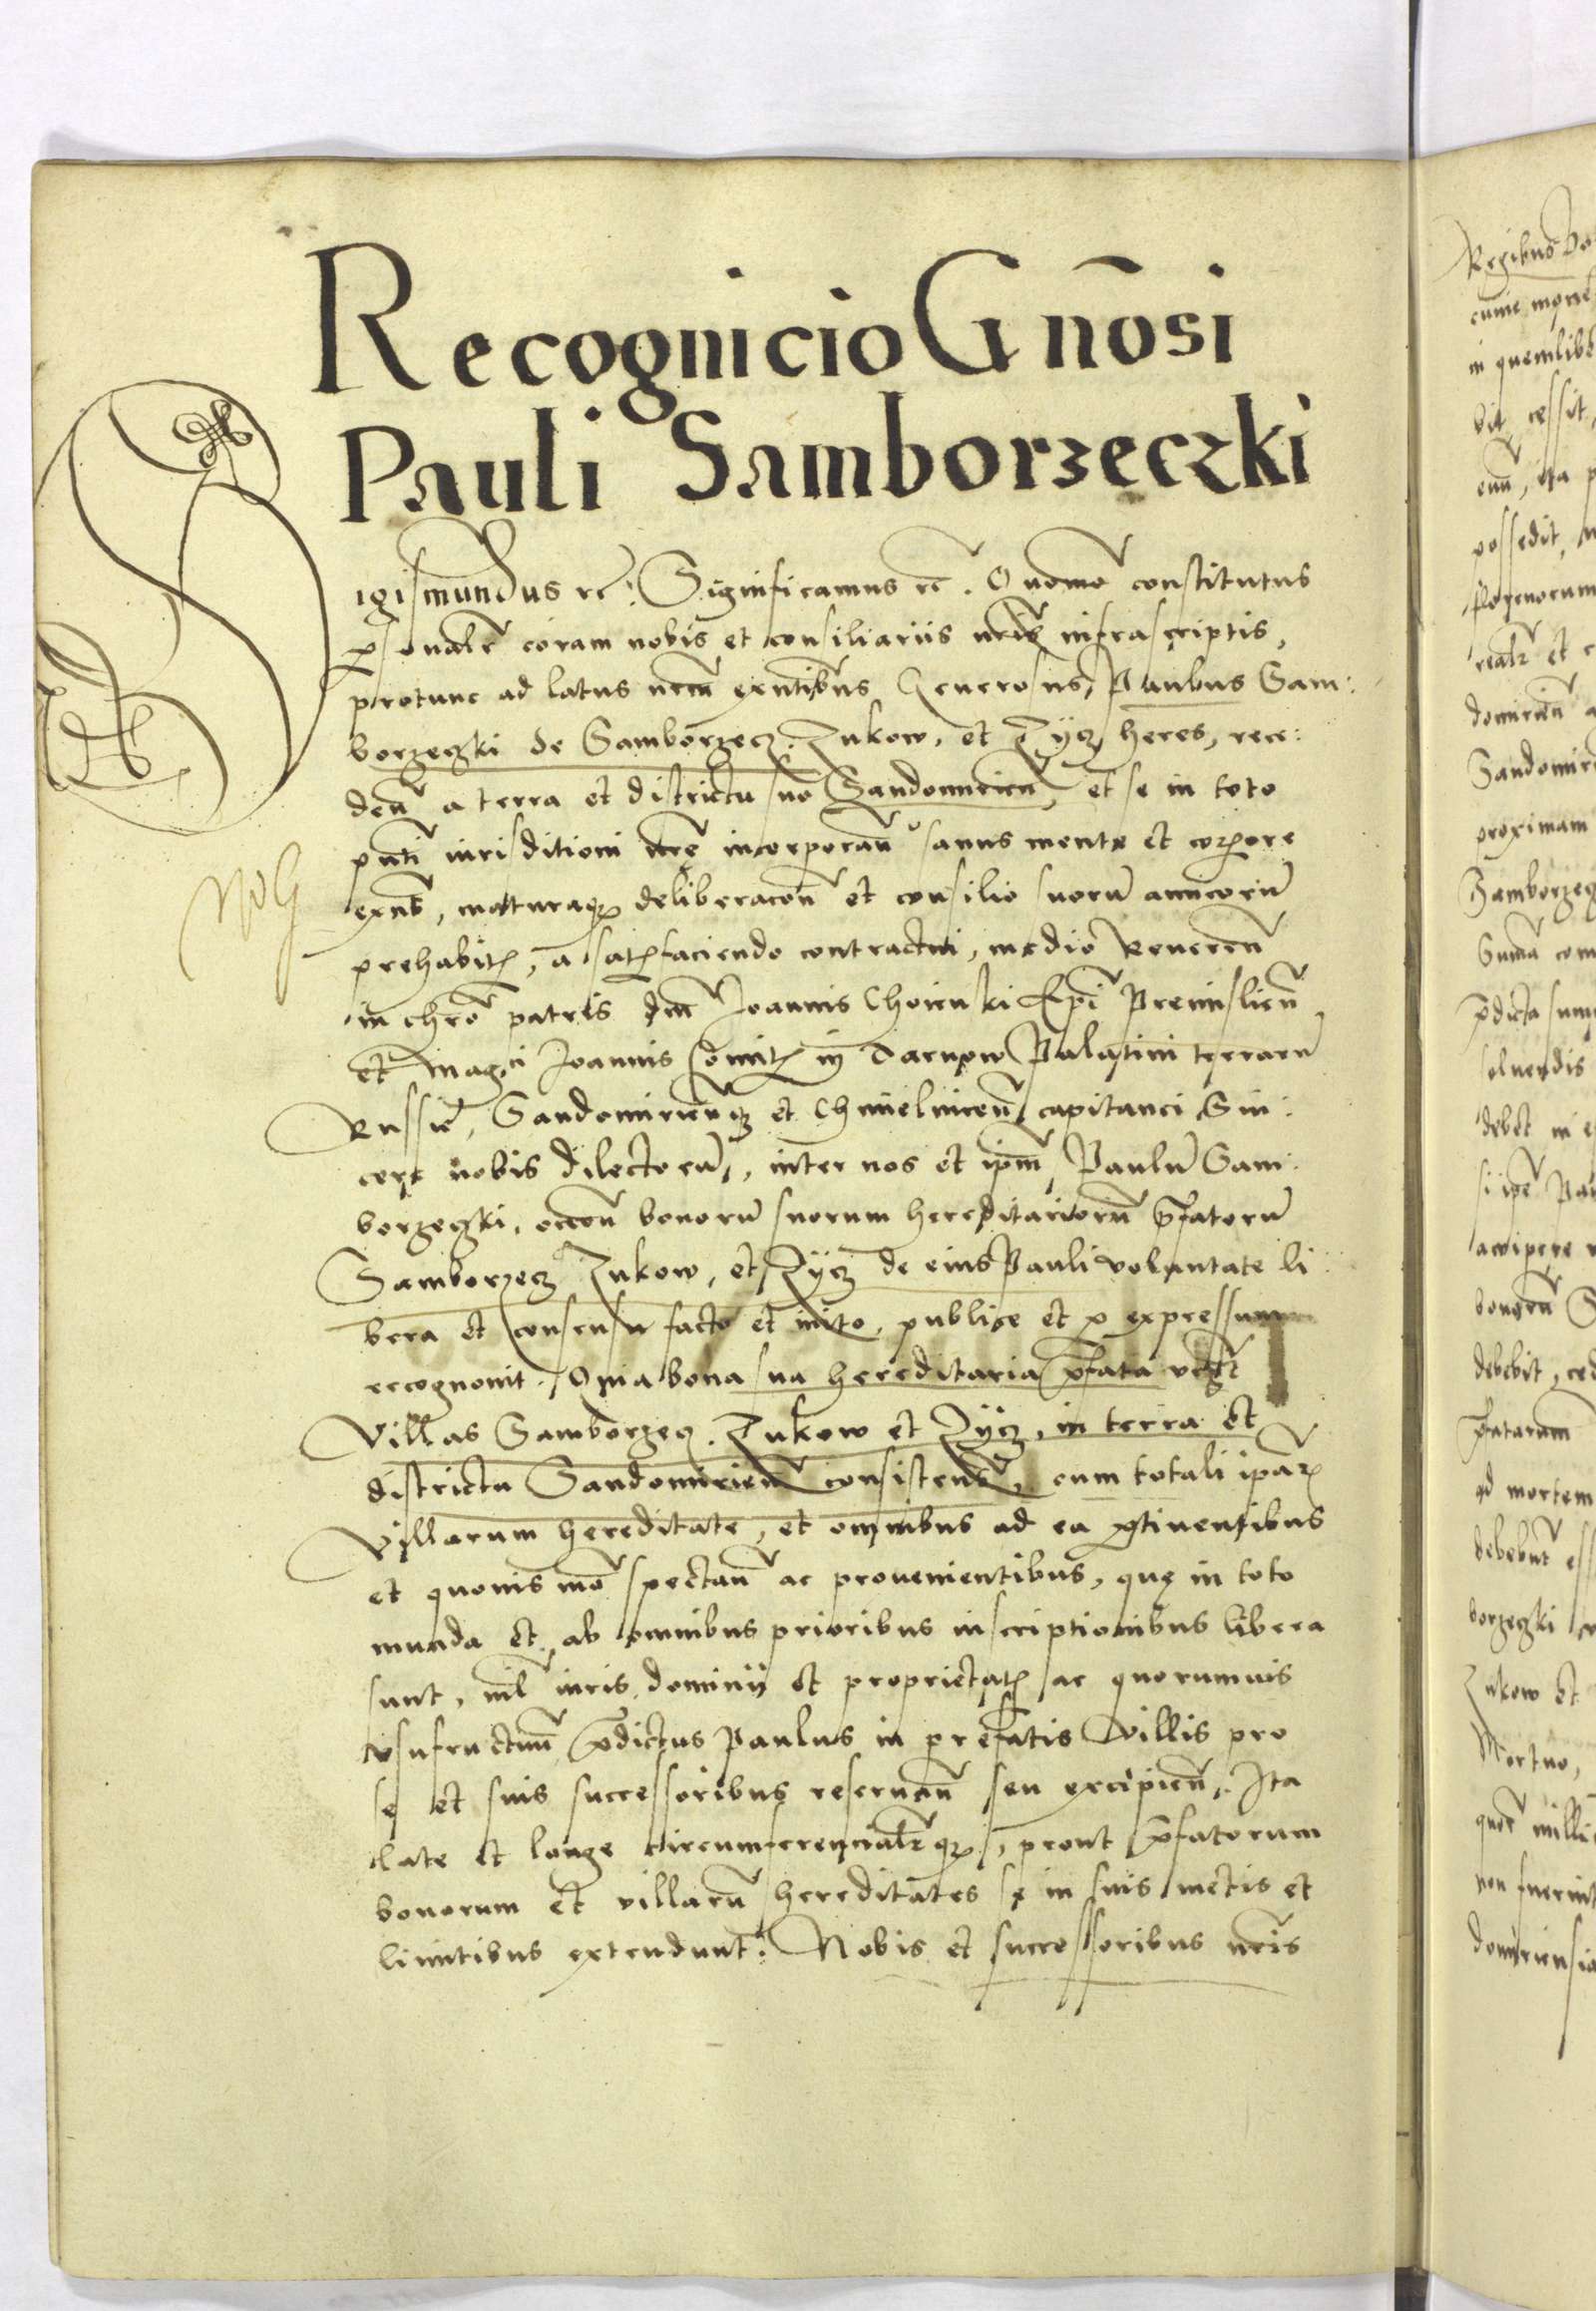 Recognicio Gnosi
Pauli Samborzeczki
Sigismundus rc. Significamus rc. Quomo constitutus
psonalr coram nobis et consiliariis nris infrascriptis,
protunc ad latus nrm exntibus Generosus Paulus Sam:
borzeczki de Samborzecz. Zukow, et Zycz heres, rece:
den a terra et districtu suo Sandomirien, et se in toto
pnti iurisditioni nrę incorporan sanus mente et corpore
exns, maturaqz deliberacon et consilio suoru amicoru
prehabit, a satisfaciendo contractui, medio Reueren
in chro patris dni Joannis Choienski Epi Premislien
et Magci Joannis Comit in Tarnow Palatini terraru
Russię, Sandomirienqz et Chmielnicen capitanei Sin:
cere nobis dilectoru, inter nos et ipm Paulu Sam:
borzeczki, occon bonoru suorum hereditarioru pfatoru
Samborzecz Zukow, et Zycz de eius Pauli voluntate li:
bera et consensu facto et inito, publice et p expressum
recognouit. Oma bona sua hereditaria pfata vidz
Villas Samborzecz. Zukow et Zycz, in terra et
districtu Sandomirien consistens, cum totali ipar
Villarum hereditate, et omnibus ad ea ptinentibus
et quouis mo spectan ac prouenientibus, quę in toto
munda et ab omnibus prioribus inscriptionibus libera
sunt, nil iuris dominii et proprietatis ac quorumuis
vsufructuum pdictus Paulus in prefatis Villis pro
se et suis successoribus reseruan seu excipien. Ita
late et longe circumferencialrqz, prout pfatorum
bonorum et villaru hereditates se in suis metis et
limitibus extendunt. Nobis et successoribus nris
Regibus
in quemlib
cessit
possedit
Sandomir
proximam
Samborzec
Suma com
soluendis
accipere
debebit
ad mortem
borzeczki
Zukow et
Mortuo,
non fuerint